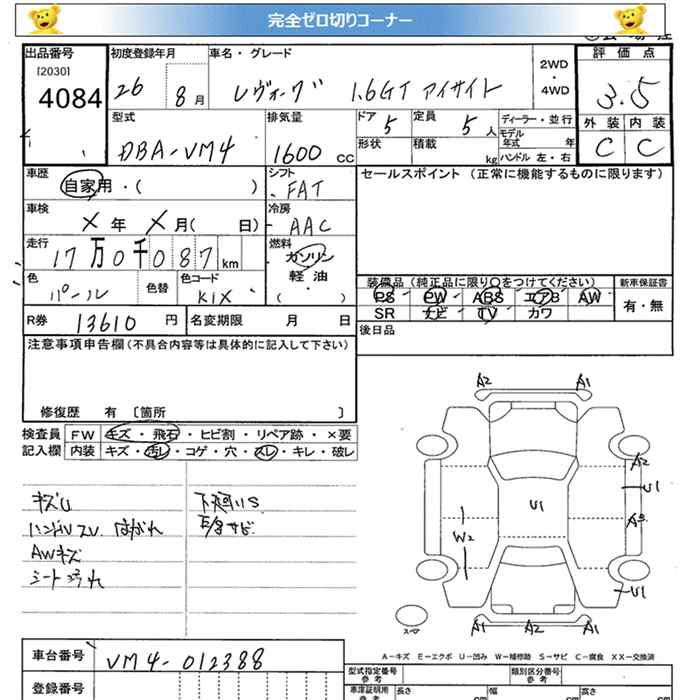 完全ゼロ切りコーナー
出品番号
[2030]
4084
初度登録年月
26 8月
車名・グレード
レヴォーグ 1.6GT アイサイト
2WD
・
4WD
評価点
3.5
外装 内装
C C
型式
DBA-VM4
排気量
1600 CC
ドア 5
形状
定員 5人
積載 kg
ディーラー・並行
モデル年式 年
ハンドル 左・右
車歴
自家用・( )
シフト
FAT
セールスポイント (正常に機能するものに限ります)
車検
X年 X月( 日)
冷房
AAC
走行
17万0千087km
燃料
ガソリン
軽油
( )
色
パール
色替
色コード
K1X
装備品(純正品に限り○をつけてください)
PS PW ABS エアB AW
SR ナビ TV カワ
新車保証書
有・無
R券 13610 円
名変期限 月 日
後日品
注意事項申告欄(不具合内容等は具体的に記入して下さい)
修復歴 有 [箇所 ]
検査員記入欄
FW キズ・飛石・ヒビ割・リペア跡・×要
内装 キズ・汚レ・コゲ・穴・スレ・キレ・破レ
キズU
ハンドルスレ はがれ
AWキズ
シート汚れ
下廻りS
A2 A1
A2
U1
U1
W2
U1
スペア
A1 A2 A1
A-キズ E-エクボ U-凹み W-補修跡 S-サビ C-腐食 XX-交換済
車台番号
VM4-012388
登録番号
型式指定番号
参考
類別区分番号
参考
車庫証明用
参考
長さ cm
幅 cm
高さ cm